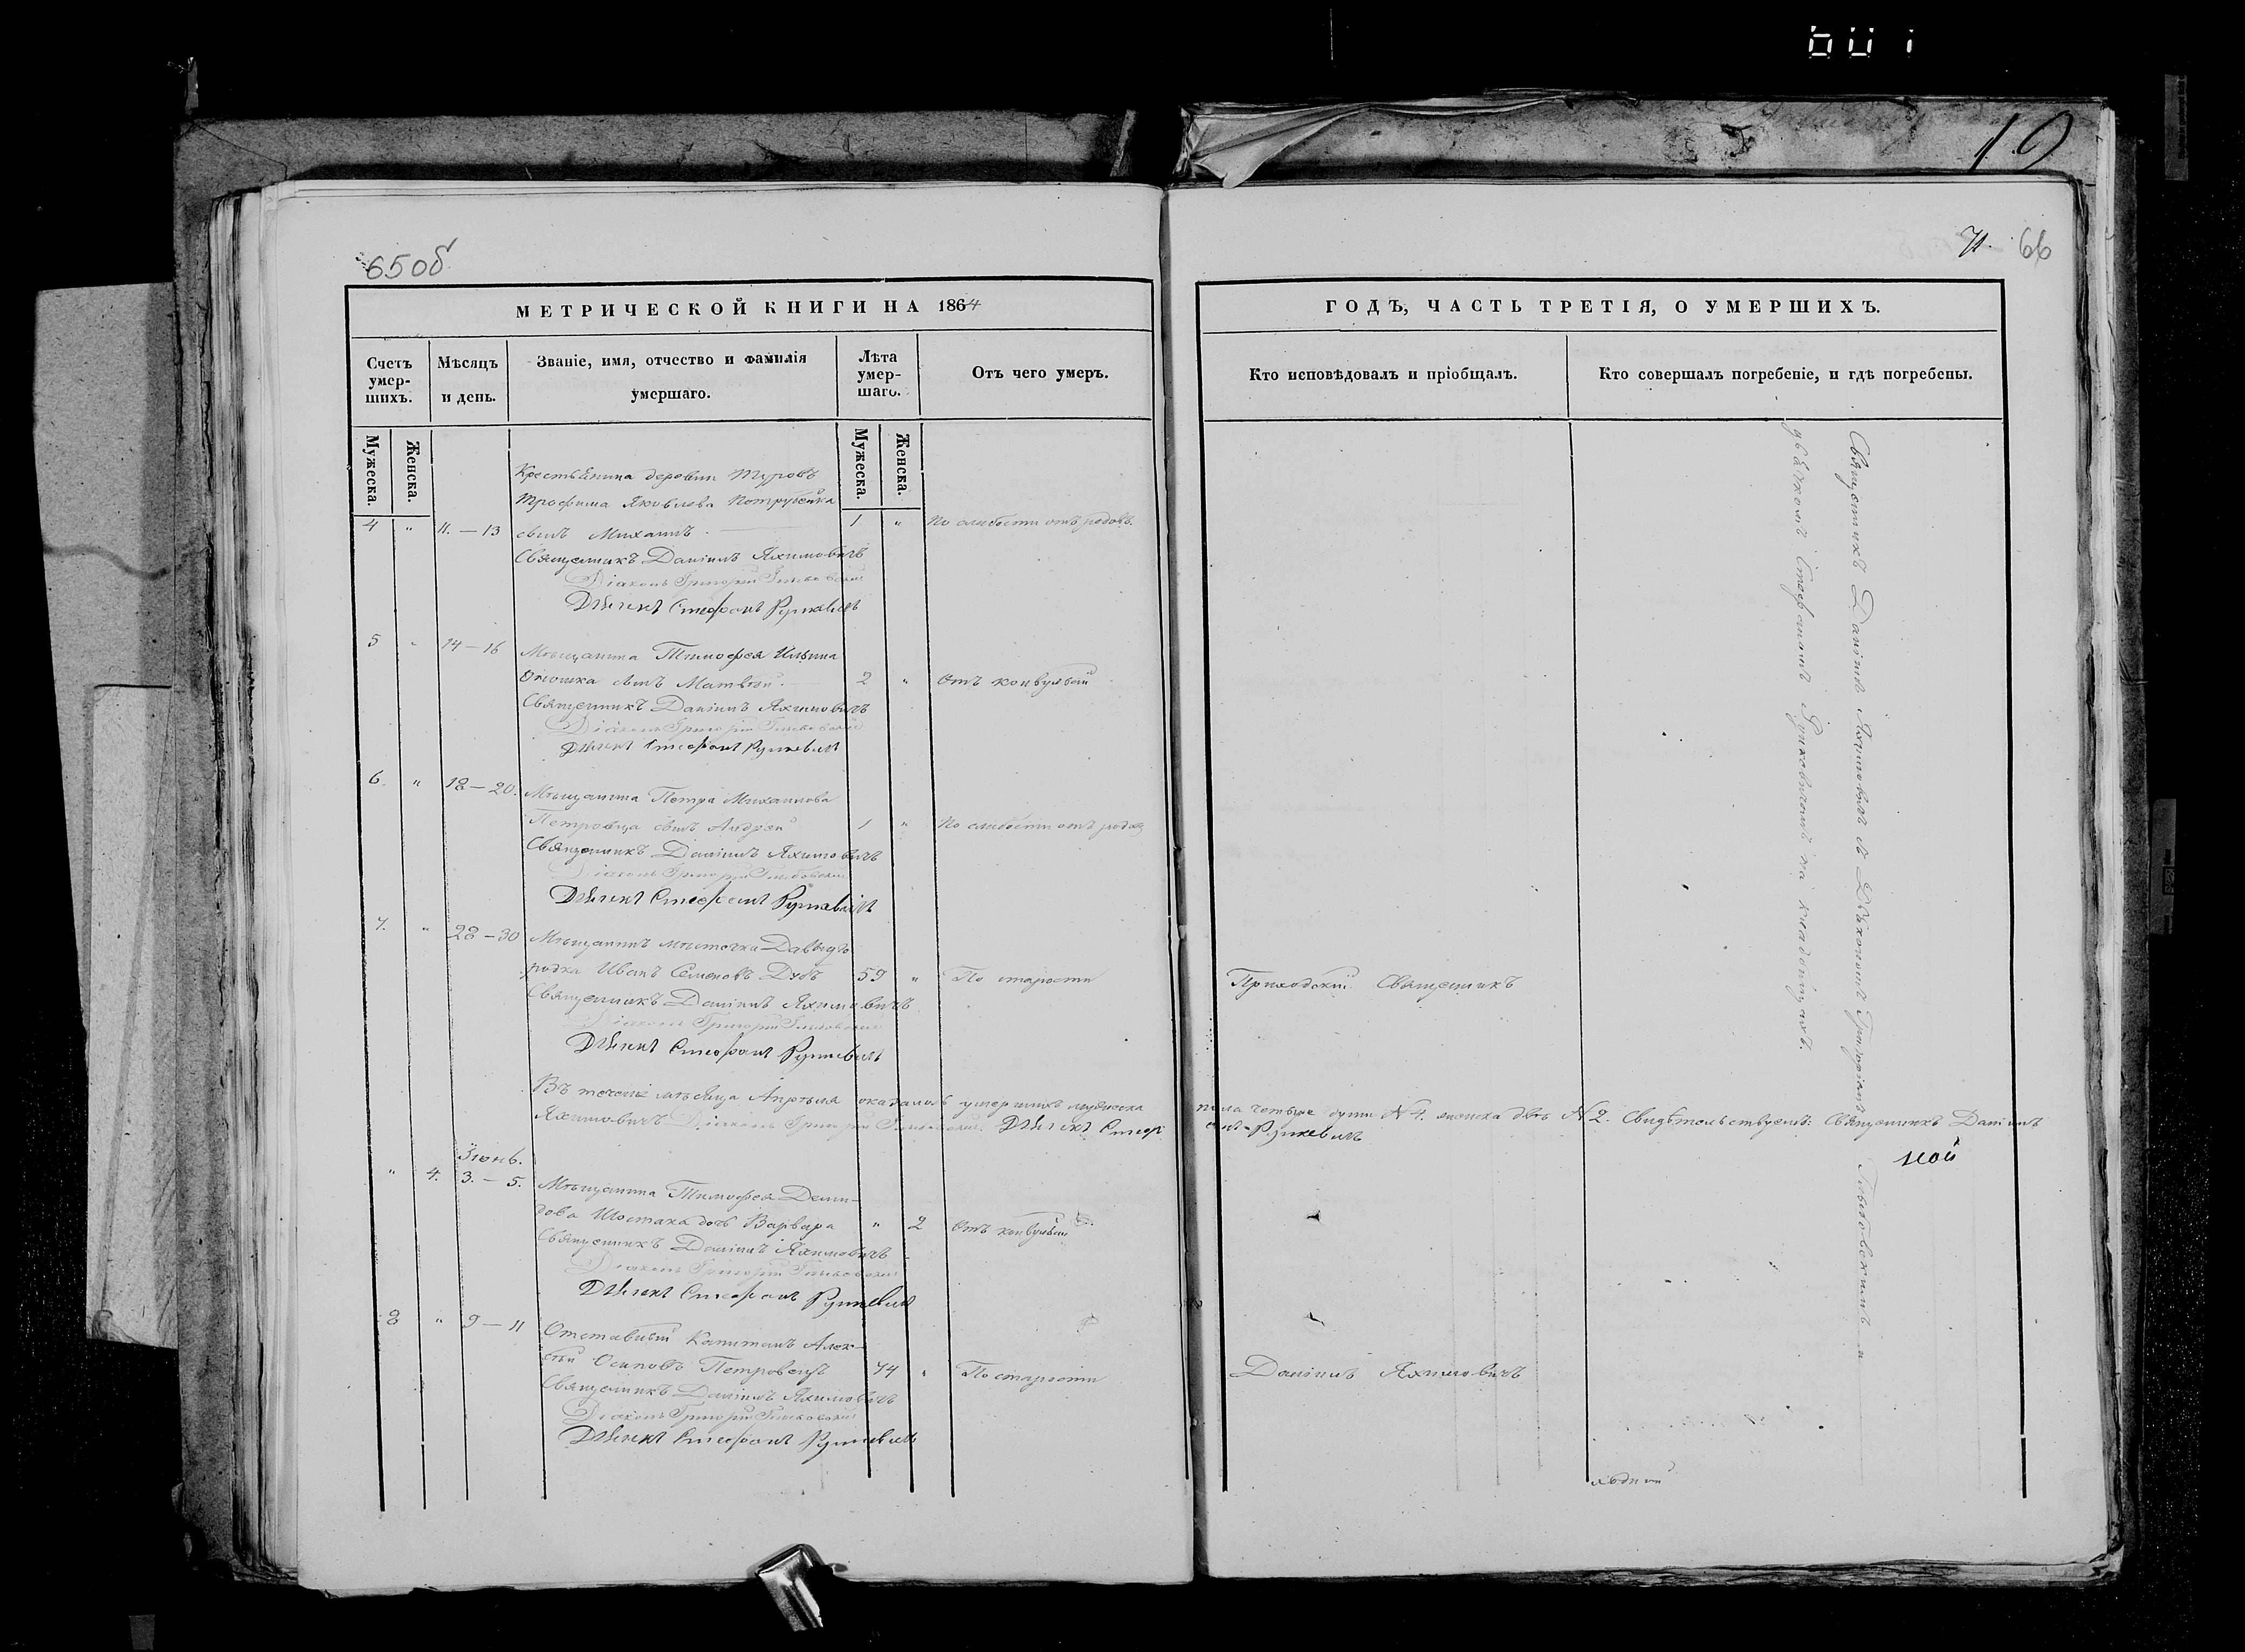 650б
71. 66
19
МЕТРИЧЕСКОЙ КНИГИ НА 1864
ГОДЪ, ЧАСТЬ ТРЕТІЯ, О УМЕРШИХЪ.
Счетъ умер-шихъ.
Мѣсяцъ и день.
Званіе, имя, отчество и фамилія умершаго.
Лѣта умер-шаго.
Отъ чего умеръ.
Кто исповѣдовалъ и пріобщалъ.
Кто совершалъ погребеніе, и гдѣ погребены.
Мужеска.
Женска.
Мужеска.
Женска.
Крестьянина деревни Туровъ
Трофима Яковлева Петрусенка
4 " 11. — 13 сынъ Михаилъ 1 " По слабости отъ родовъ.
Священникъ Даніилъ Яхимовичъ
Діаконъ Григорій
Дьячекъ Стефанъ Рункевичъ
5 " 14 — 16 Мѣщанина Тимофея Ильина
сынъ Матвей. 2 " Отъ конвульсій
Священникъ Даніилъ Яхимовичъ
Діаконъ Григорій
Дьячекъ Стефанъ Рункевичъ
6. " 18 — 20. Мѣщанина Петра Михаилова
Петровца сынъ Андрей 1 " По слабости отъ родов
Священникъ Даніилъ Яхимовичъ
Діаконъ Григорій
Дьячекъ Стефанъ Рункевичъ
7. " 28 — 30 Мѣщанинъ мѣстечка Давыдго
родка Иванъ Семеновъ Дубъ 59 " По старости Приходскій Священникъ
Священникъ Даніилъ Яхимовичъ
Діаконъ Григорій
Дьячекъ Стефанъ Рункевичъ
Въ теченіе мѣсяца Апрѣля оказалось умершихъ мужеска пола четыре души № 4. женска двѣ № 2. Свидѣтельствуемъ: Священникъ Даніилъ
Яхимовичъ Діаконъ Григорій Дьячекъ Стефанъ Рункевичъ
Іюнь.
" 4. 3. — 5. Мѣщанина Тимофея Деми-
дова Шостака дочь Варвара " 2 Отъ конвульсій
Священникъ Даніилъ Яхимовичъ
Діаконъ Григорій
Дьячекъ Стефанъ Рункевичъ
8 " 9 — 11 Отставный Капитанъ Алек-
сѣй Осиповъ Петровецъ 74 " По старости Даніилъ Яхимовичъ
Священникъ Даніилъ Яхимовичъ
Діаконъ Григорій
Дьячекъ Стефанъ Рункевичъ
Священникъ Даніилъ Яхимовичъ съ Діакономъ Григоріемъ и
дьячкомъ Стефаномъ Рункевичемъ на кладбищахъ.